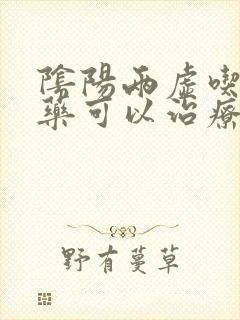 陰陽兩虛喫
藥可以治療
野有蔓草